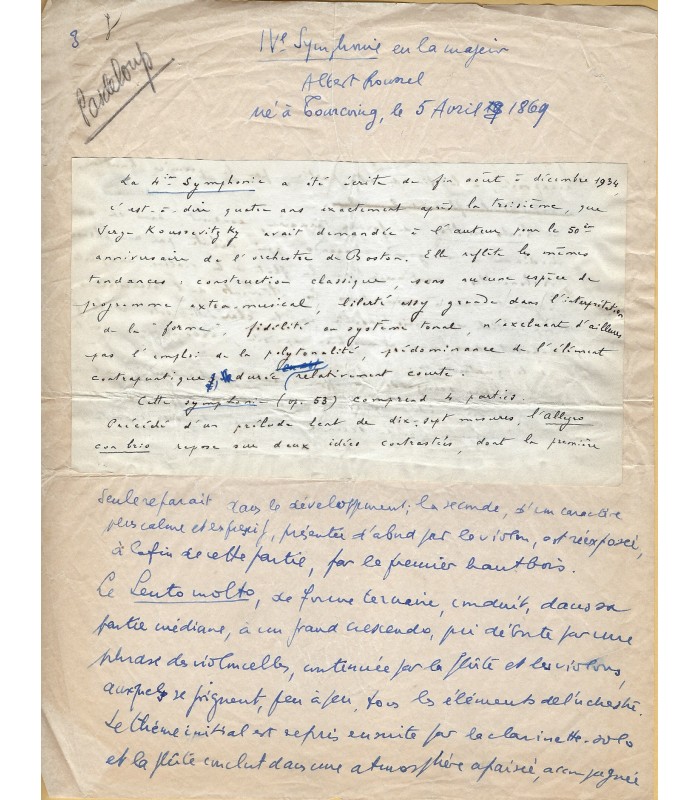 8
Pasdeloup
IVe Symphonie en la majeur
Albert Roussel
né à Tourcoing, le 5 Avril 1869
La 4me Symphonie a été écrite de fin août à décembre 1934,
c'est-à-dire quatre ans exactement après la troisième, que
Serge Koussevitzky avait demandée à l'auteur pour le 50e
anniversaire de l'orchestre de Boston. Elle reflète les mêmes
tendances : construction classique, sans aucune espèce de
programme extra-musical, liberté assez grande dans l'interprétation
de la "forme", fidélité au système tonal, n'excluant d'ailleurs
pas l'emploi de la polytonalité, prédominance de l'élément
contrapuntique, durée relativement courte.
Cette symphonie (op. 53) comprend 4 parties.
Précédé d'un prélude lent de dix-sept mesures, l'allegro
con brio repose sur deux idées contrastées, dont la première
seule reparaît dans le développement; la seconde, d'un caractère
plus calme et expressif, présentée d'abord par le violon, est réexposée,
à la fin de cette partie, par le premier hautbois.
Le Lento molto, de forme ternaire, conduit, dans sa
partie médiane, à un grand crescendo, qui débute par une
phrase des violoncelles, continuée par la flûte et les violons,
auxquels se joignent, peu à peu, tous les éléments de l'orchestre.
Le thème initial est repris ensuite par la clarinette-solo
et la flûte conclut dans une atmosphère apaisée, accompagnée